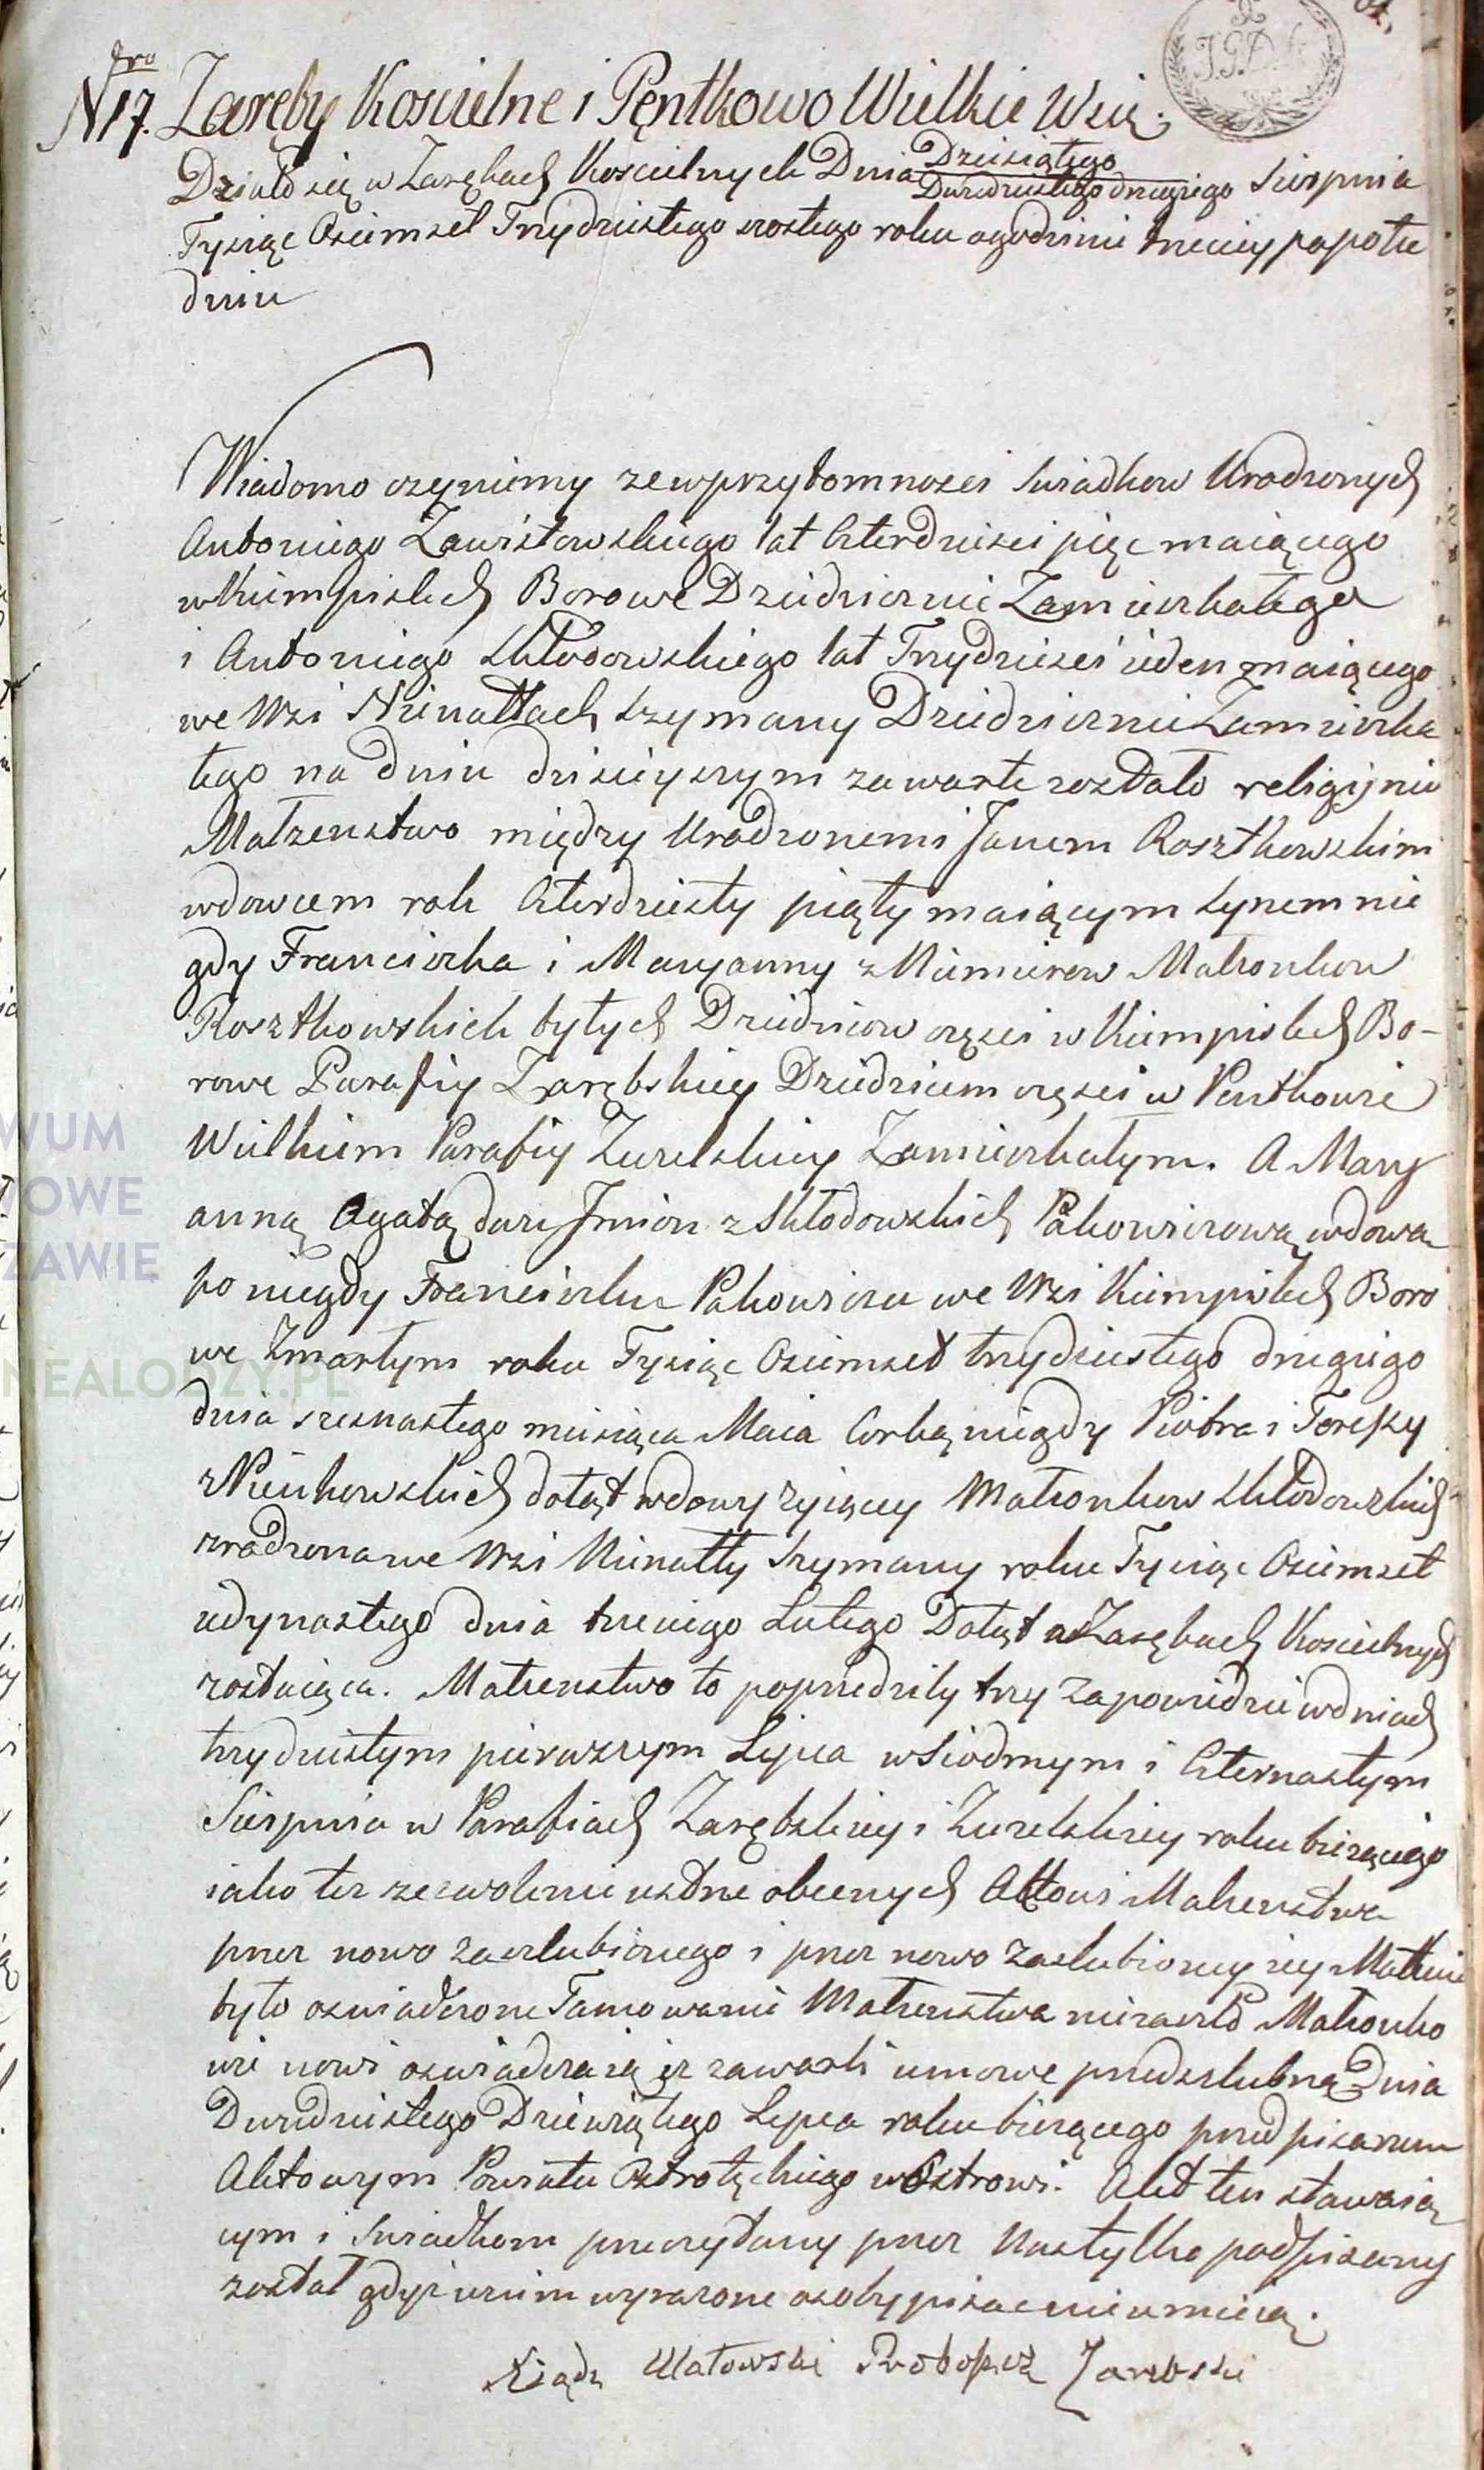 Nro 17. Zaręby Koscielne i Pęntkowo Wielkie Wsię.
Działo się w Zarębach Koscielnych Dnia Dziesiątego
Dwudziestego drugiego Sierpnia
Tysiąc Osiemset Trzydziestego szostego roku o godzinie trzeciey popołu
dniu
Wiadomo czyniemy ze w przytomnosci swiadkow Urodzonych
Antoniego Zawistowskiego lat Czterdziesci pięc maiącego
w Kempistech Borowe Dziedzicznie Zamieszkałego
i Antoniego Skłodowskiego lat Trzydziesci ieden maiącego
we Wsi Nienałtach Szymany Dziedzicznie Zamieszka
łego na dniu dzisieyszym zawarte zostało religijnie
Małzenstwo między Urodzonemi Janem Rosztkowskim
wdowcem rok Czterdziesty piąty maiącym synem nie
gdy Franciszka i Maryanny z Niemierow Małzonkow
Rosztkowskich byłych Dziedzicow częsci w Kempistech Bo-
rowe Parafiy Zarębskiey Dziedzicem częsci w Pentkowie
Wielkiem Parafiy Zuzelskiey Zamieszkałym. A Mary
anną Agatą dwu Jmion z Skłodowskich Pakowiczową wdową
po niegdy Franciszku Pakowiczu we Wsi Kempistech Boro
we Zmarłym roku Tysiąc Osiemset trzydziestego drugiego
dnia szesnastego miesiąca Maia Corką niegdy Piotra i Teressy
z Nienkowskich dotąt wdowy zyiącey Małzonkow Skłodowskich
zrodzona we Wsi Nienałty Szymany roku Tysiąc Osiemset
iedynastego dnia trzeciego Lutego Dotąt w Zarębach Koscielnych
zostaiąca. Małzenstwo to poprzedziły trzy zapowiedzie w dniach
trzydziestym pierwszym Lipca w Siodmym i Czternastym
Sierpnia w Parafiach Zarębskiey i Zuzelskiey roku biezącego
iako tez zezwolenie ustne obecnych Aktowi Małzenstwa
przez nowo zaslubionego i przez nowo zaslubioney iey Matkie
było oswiadczone Tamowanie Małzenstwa nie zaszło Małzonko
wie nowi oswiadczaią iz zawarli umowe przedslubną Dnia
Dwudziestego Dziewiątego Lipca roku biezącego przed pisarzem
Aktowym Powiatu Ostrołęckiego w Ostrowi. Akt ten stawaią
cym i swiadkom przeczytany przez Nas tylko podpisany
został gdyz w nim wyrazone osoby pisac nie umieią.
Xiądz Ułatowski Proboszcz Zarebski